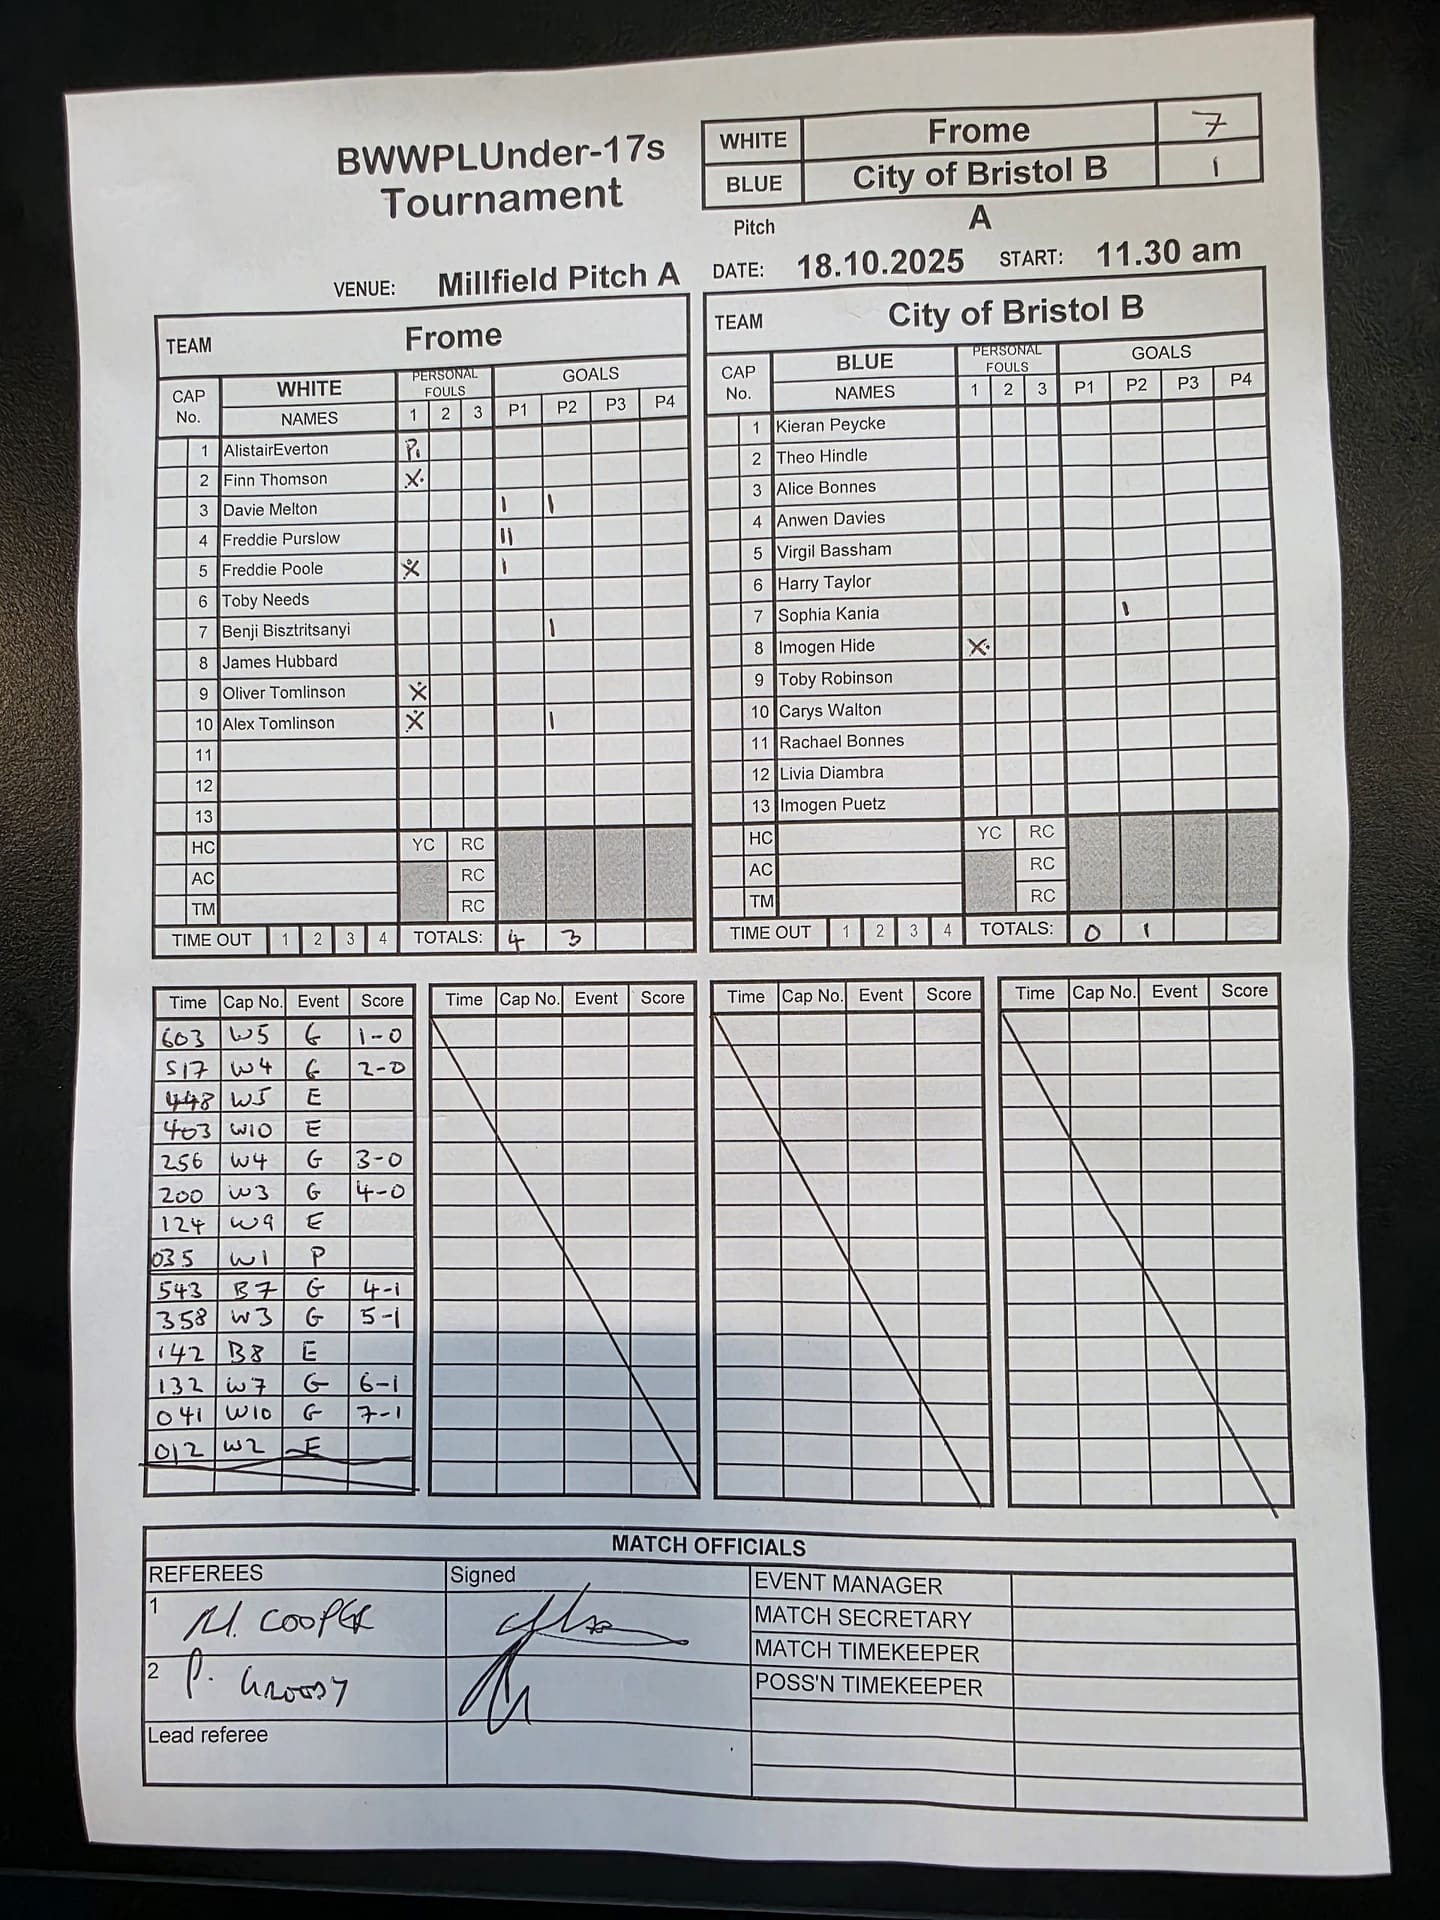 BWWPLUnder-17s
Tournament
WHITE Frome 7
BLUE City of Bristol B 1
Pitch A
VENUE: Millfield Pitch A DATE: 18.10.2025 START: 11.30 am
TEAM Frome
CAP No. WHITE NAMES PERSONAL FOULS 1 2 3 GOALS P1 P2 P3 P4
1 AlistairEverton P.
2 Finn Thomson X
3 Davie Melton I I
4 Freddie Purslow II
5 Freddie Poole X I
6 Toby Needs
7 Benji Bisztritsanyi I
8 James Hubbard
9 Oliver Tomlinson X
10 Alex Tomlinson X I
11
12
13
HC YC RC
AC RC
TM RC
TIME OUT 1 2 3 4 TOTALS: 4 3
TEAM City of Bristol B
CAP No. BLUE NAMES PERSONAL FOULS 1 2 3 GOALS P1 P2 P3 P4
1 Kieran Peycke
2 Theo Hindle
3 Alice Bonnes
4 Anwen Davies
5 Virgil Bassham
6 Harry Taylor
7 Sophia Kania I
8 Imogen Hide X
9 Toby Robinson
10 Carys Walton
11 Rachael Bonnes
12 Livia Diambra
13 Imogen Puetz
HC YC RC
AC RC
TM RC
TIME OUT 1 2 3 4 TOTALS: 0 1
Time Cap No. Event Score Time Cap No. Event Score Time Cap No. Event Score Time Cap No. Event Score
603 W5 G 1-0
517 W4 G 2-0
448 W5 E
403 W10 E
256 W4 G 3-0
200 W3 G 4-0
124 W9 E
035 W1 P
543 B7 G 4-1
358 W3 G 5-1
142 B8 E
132 W7 G 6-1
041 W10 G 7-1
012 W2 E
MATCH OFFICIALS
REFEREES Signed
1 M. COOPER
2 P.
Lead referee
EVENT MANAGER
MATCH SECRETARY
MATCH TIMEKEEPER
POSS'N TIMEKEEPER